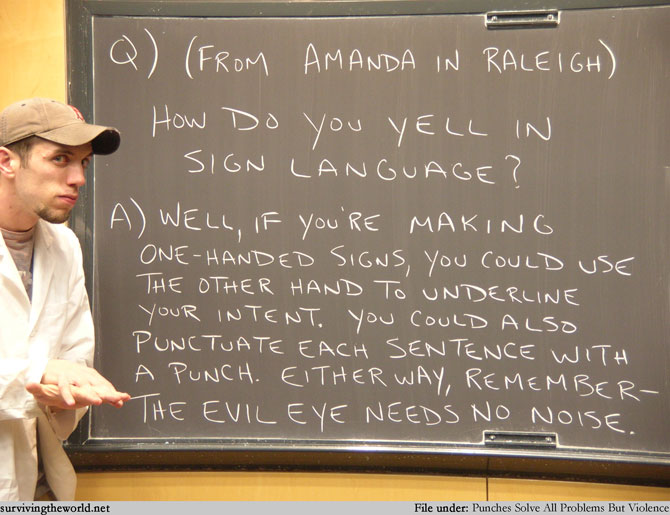 Q) (FROM AMANDA IN RALEIGH)
HOW DO YOU YELL IN
SIGN LANGUAGE?
A) WELL, IF YOU'RE MAKING
ONE-HANDED SIGNS, YOU COULD USE
THE OTHER HAND TO UNDERLINE
YOUR INTENT. YOU COULD ALSO
PUNCTUATE EACH SENTENCE WITH
A PUNCH. EITHER WAY, REMEMBER—
THE EVIL EYE NEEDS NO NOISE.
survivingtheworld.net File under: Punches Solve All Problems But Violence